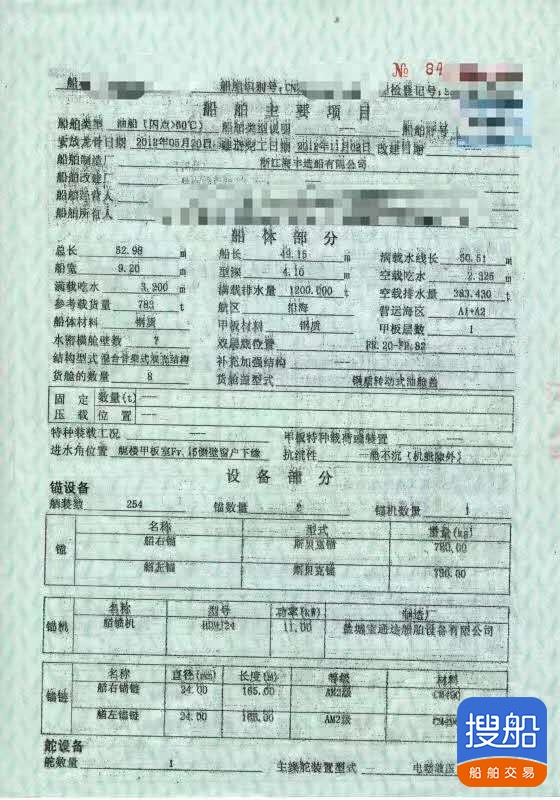 № 84
船舶识别号:CN
船检登记号:
船舶主要项目
船舶类型 油船(闪点>60℃) 船舶类型说明 —— 船舶呼号
安放龙骨日期 2012年05月20日 建造完工日期 2012年11月02日 改建日期
船舶制造厂 浙江海丰造船有限公司
船舶改建厂
船舶经营人
船舶所有人
船体部分
总长 52.98 m 船长 49.15 m 满载水线长 50.51 m
船宽 9.20 m 型深 4.10 m 空载吃水 2.325 m
满载吃水 3.200 m 满载排水量 1200.000 t 空载排水量 383.430 t
参考载货量 783 t 航区 沿海 营运海区 A1+A2
船体材料 钢质 甲板材料 钢质 甲板层数 1
水密横舱壁数 7 双层底位置 FR.20-FR.82
结构型式 混合骨架式双壳结构 补充加强结构 ——
货舱的数量 8 货舱盖型式 钢质转动式油舱盖
固定 数量(t) ——
压载 位置 ——
特种装载工况 —— 甲板特种载荷装置 ——
进水角位置 艉楼甲板室Fr.15侧壁窗户下缘 抗沉性 一舱不沉(机舱除外)
设备部分
锚设备
舾装数 254 锚数量 2 锚机数量 1
锚 名称 型式 重量(kg)
船右锚 斯贝克锚 780.00
船左锚 斯贝克锚 790.00
锚机 名称 型号 功率(kW) 制造厂
船锚机 11.00 盐城宝通达船舶设备有限公司
锚链 名称 直径(mm) 长度(m) 等级 材料
船右锚链 24.00 165.00 AM2级 CM490
船左锚链 24.00 165.00 AM2级 CM490
舵设备
舵数量 1 主操舵装置型式 —— 电动液压
搜船
船舶交易